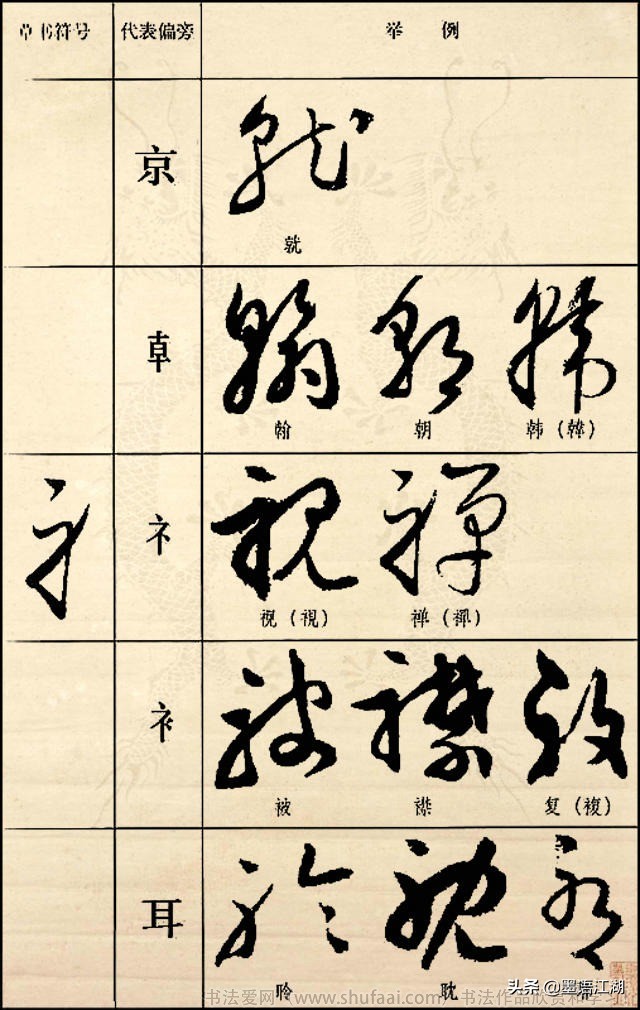 草书符号 代表偏旁 举 例
京
就
𠦝
翰 朝 韩（韓）
礻
视（視） 禅（禪）
衤
被 襟 复（複）
耳
聆 耽
书法爱网 / www.shufaai.com/ 书法作品欣赏和学习
头条 @墨语江湖